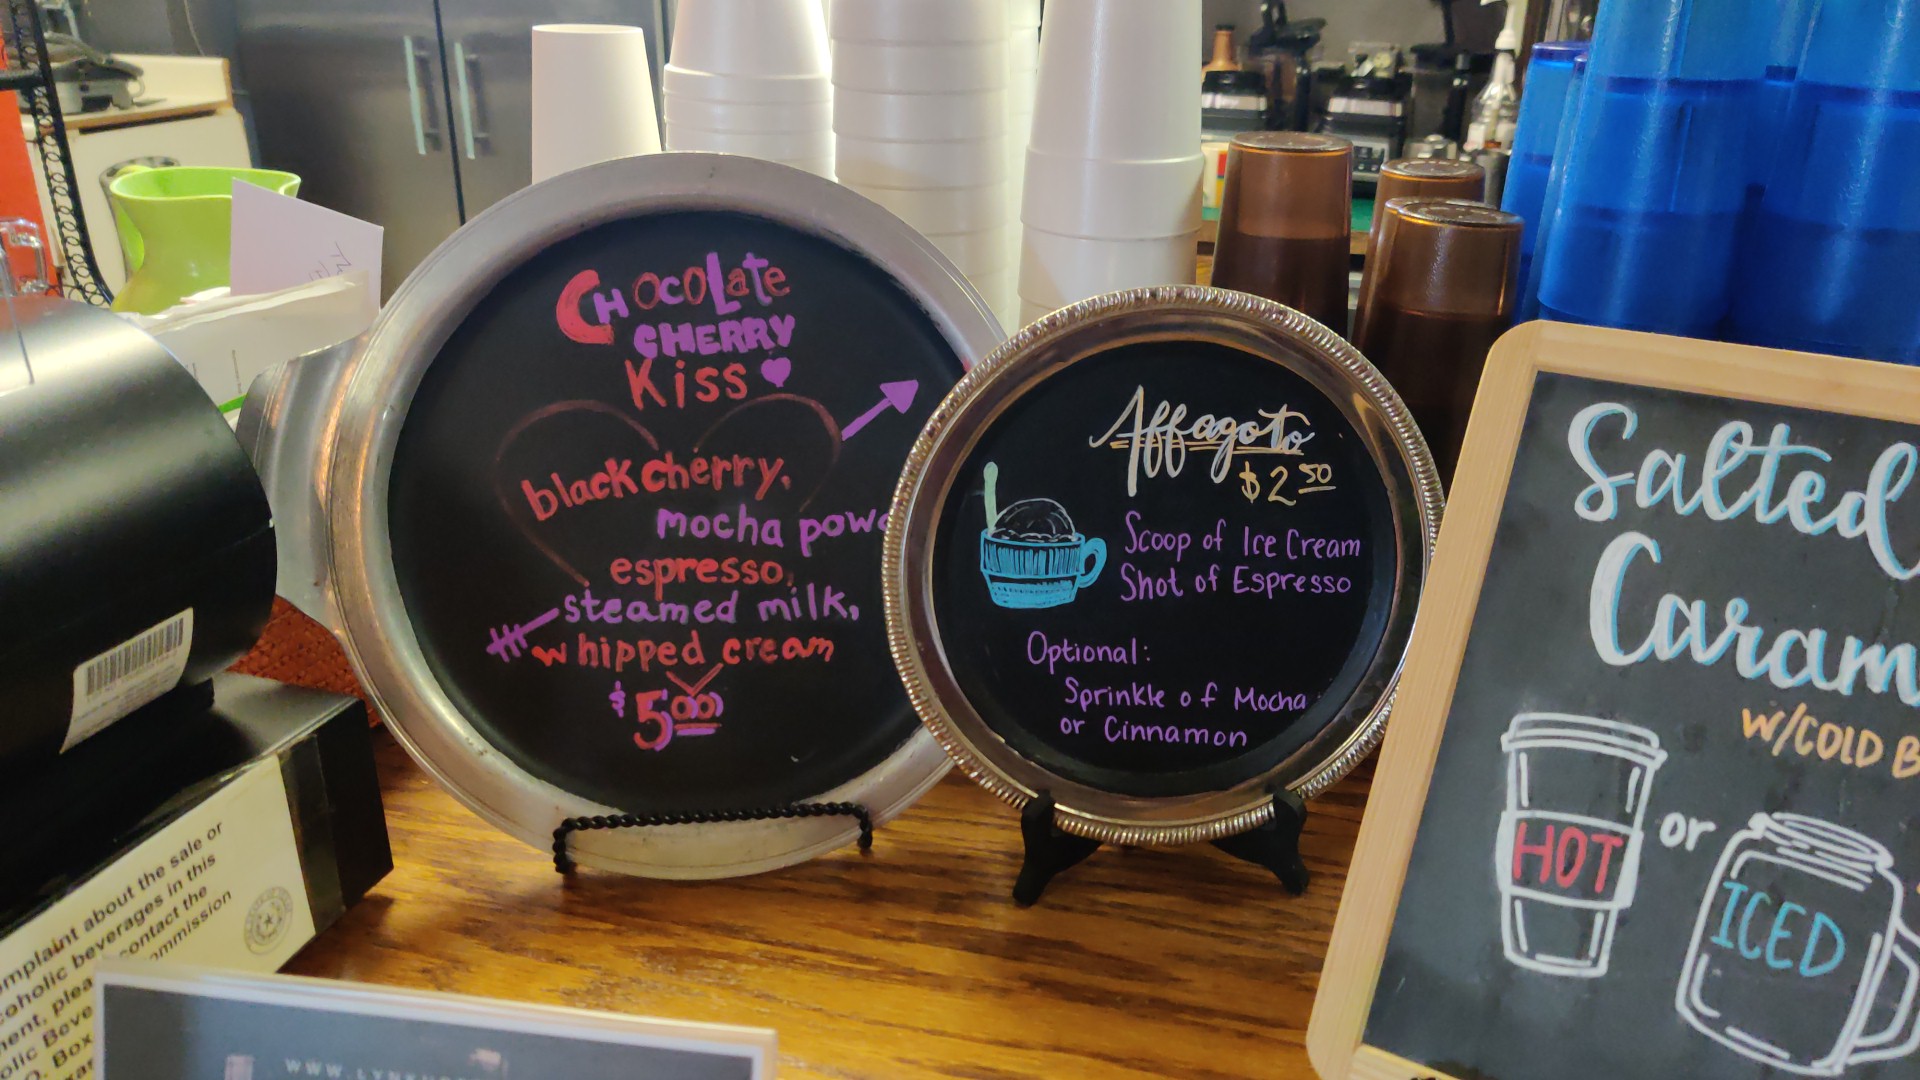 CHOCOLate
CHERRY
Kiss
black cherry,
mocha powd
espresso,
steamed milk,
whipped cream
$5.00
Affagoto
$2.50
Scoop of Ice Cream
Shot of Espresso
Optional:
Sprinkle of Mocha
or Cinnamon
Salted
Caram
W/COLD B
HOT
or
ICED
omplaint about the sale or
coholic beverages in this
ent, plea contact the
olic Beve ommission
O. Box
xas